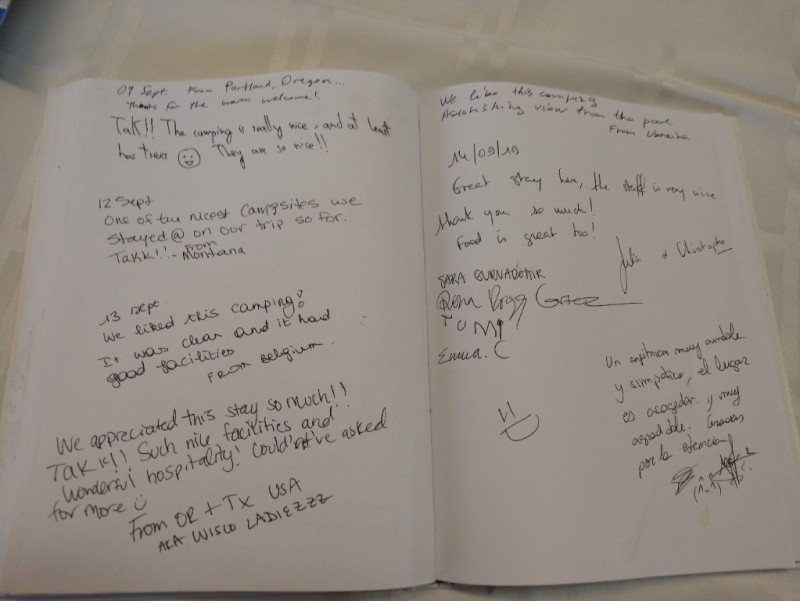 09 Sept. From Portland, Oregon...
Thanks for the warm welcome!
Takk!! The camping is really nice, and at least
has trees They are so nice!!
12 Sept
One of the nicest campsites we
stayed @ on our trip so far.
Takk!! - From Montana
13 sept.
We liked this camping!
It was clean and it had
good facilities
FROM Belgium.
We appreciated this stay so much!!
Takk!! Such nice facilities and
wonderful hospitality! Couldn't've asked
for more
From OR + TX USA
AKA WISCO LADIEZZZ
We like this camping
view from the pool
From Ukraine
14/09/19
Great stay here, the staff is very nice
thank you so much!
Food is great too!
Julia & Christophe
SARA
TOMI
Emma. C
Un muy amable
y simpático, el lugar
es acogedor y muy
agradable. Gracias
por la atencion!